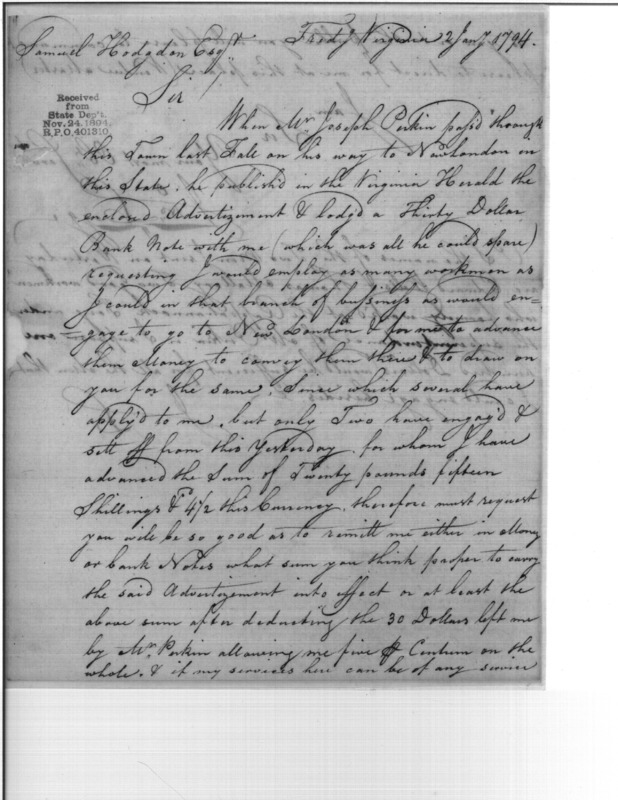 Samuel Hodgdon Esqr
Virginia 2 Jany 1794.
Sir
Received
from
State Dep't.
Nov. 24, 1894,
R.P.O, 401310.
When Mr Joseph Perkin pass'd through
this Town last Fall on his way to New London in
this State, he publish'd in the Virginia Herald the
enclosed Advertizement & lodg'd a Thirty Dollar
Bank Note with me (which was all he could spare)
requesting I would employ as many workmen as
I could in that branch of bussiness as would en=
=gage to go to New London & for me to advance
them Money to convey them there & to draw on
you for the same, Since which several have
apply'd to me, but only Two have engag'd &
sett off from this Yesterday, for whom I have
advanced the Sum of Twenty pounds fifteen
Shillings & 4½ this Currency, therefore must request
you will be so good as to remitt me either in Money
or bank Notes what sum you think proper to carry
the said Advertizement into effect or at least the
above sum after deducting the 30 Dollars left me
by Mr Perkin allowing me five P Centum on the
whole. & if my services here can be of any service